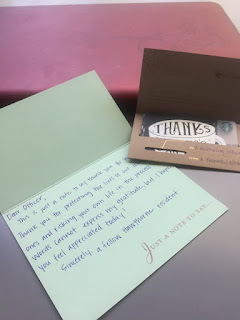 Dear Officer,
This is just a note to say thank you
Thank you for protecting the lives of our
ones and risking your own life in the process
Words cannot express my gratitude, but I hope
you feel appreciated today!
Sincerely, a fellow Hawthorne resident
JUST A NOTE TO SAY...
THANKS